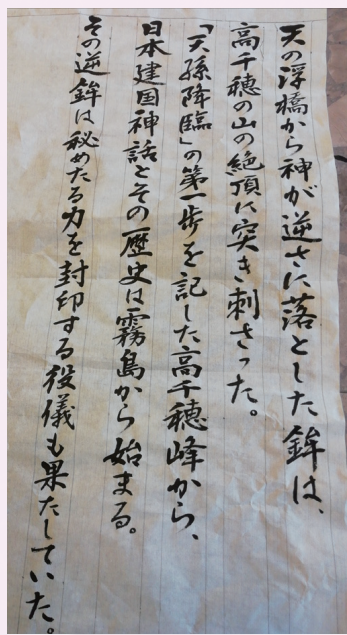 天の浮橋から神が逆さに落とした鉾は、
高千穂の山の絶頂に突き刺さった。
「天孫降臨」の第一歩を記した高千穂峰から、
日本建国神話とその歴史は霧島から始まる。
その逆鉾は秘めたる力を封印する役儀も果たしていた。